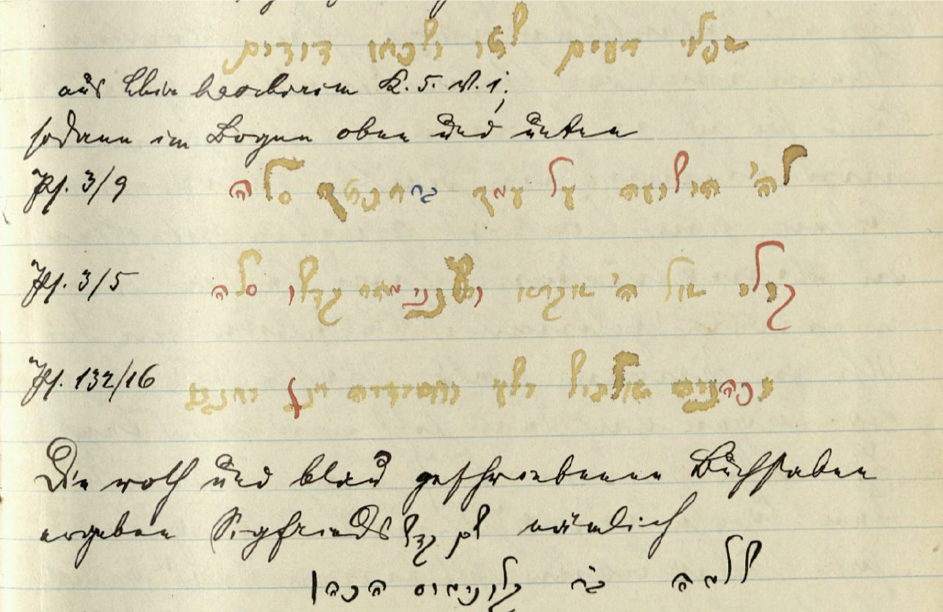 אכלו רעים שתו ושכרו דודים
aus Schir haschirim K. 5. V. 1;
sodann im Bogen oben und unten
Ps. 3/9 לה' הישועה על עמך ברכתך סלה
Ps. 3/5 קולי אל ה' אקרא ויענני מהר קדשו סלה
Ps. 132/16 וכהניה אלביש ישע וחסידיה רנן ירננו
Die roth und blau geschriebenen Buchstaben
ergeben Sigfrieds שם קדש nämlich
שלמה בר קלונימוס הכהן